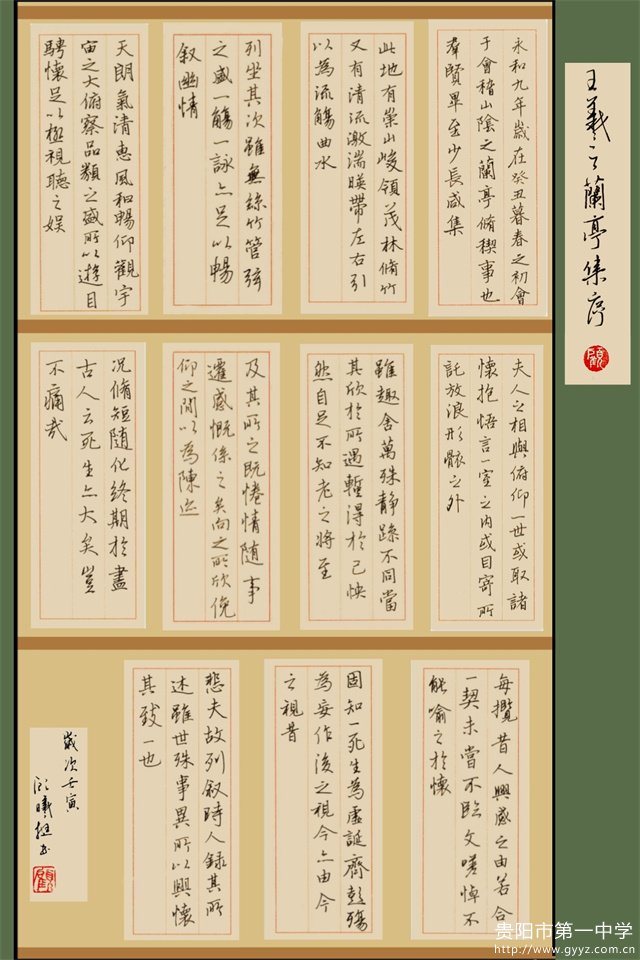 王羲之蘭亭集序
永和九年歲在癸丑暮春之初會
于會稽山陰之蘭亭脩稧事也
羣賢畢至少長咸集
此地有崇山峻領茂林脩竹
又有清流激湍暎帶左右引
以為流觴曲水
列坐其次雖無絲竹管弦
之盛一觴一詠亦足以暢
叙幽情
天朗氣清惠風和暢仰觀宇
宙之大俯察品類之盛所以遊目
騁懷足以極視聽之娱
夫人之相與俯仰一世或取諸
懷抱悟言一室之内或目寄所
託放浪形骸之外
雖趣舍萬殊静躁不同當
其欣於所遇暫得於己怏
然自足不知老之將至
及其所之既惓情隨事
遷感慨係之矣向之所欣俛
仰之間以為陳迹
況脩短隨化終期於盡
古人云死生亦大矣豈
不痛哉
每攬昔人興感之由若合
一契未嘗不臨文嗟悼不
能喻之於懷
固知一死生為虚誕齊彭殤
為妄作後之視今亦由今
之視昔
悲夫故列叙時人録其所
述雖世殊事異所以興懷
其致一也
歲次壬寅
顾曦书
贵阳市第一中学
http://www.gyyz.com.cn